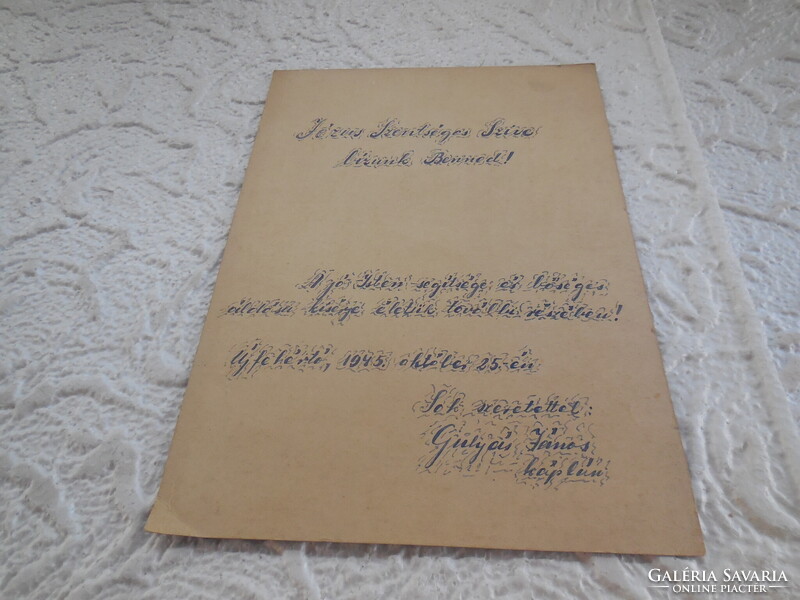 Jézus Szentséges Szíve
bízunk Benned!
A jó Isten segítsége és bőséges
áldása kisérje életük további részében!
Újfehértó, 1945. október 25-én
Sok szeretettel:
Gulyás János
káplán
GALÉRIA SAVARIA
ONLINE PIACTÉR